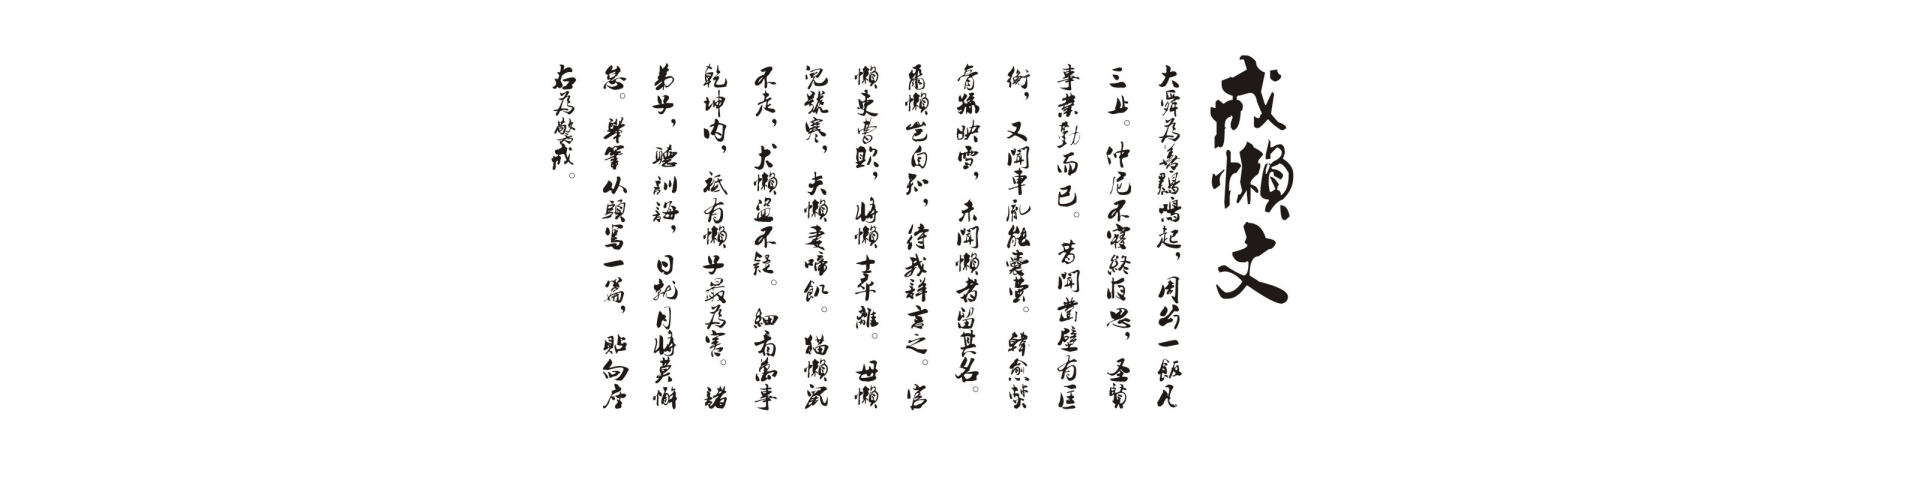 戒懶文
大舜為善鷄鳴起，周公一飯凡
三止。仲尼不寢終夜思，圣賢
事業勤而已。昔聞鑿壁有匡
衡，又聞車胤能囊萤。韓愈焚
膏孫映雪，未聞懶者留其名。
爾懶豈自知，待我詳言之。官
懶吏曹欺，將懶士卒離。母懶
兒號寒，夫懶妻啼飢。猫懶鼠
不走，犬懶盜不疑。細看萬事
乾坤内，祗有懶字最為害。諸
弟子，聽訓誨，日就月將莫懈
怠。舉筆从頭寫一篇，貼向座
右為警戒。